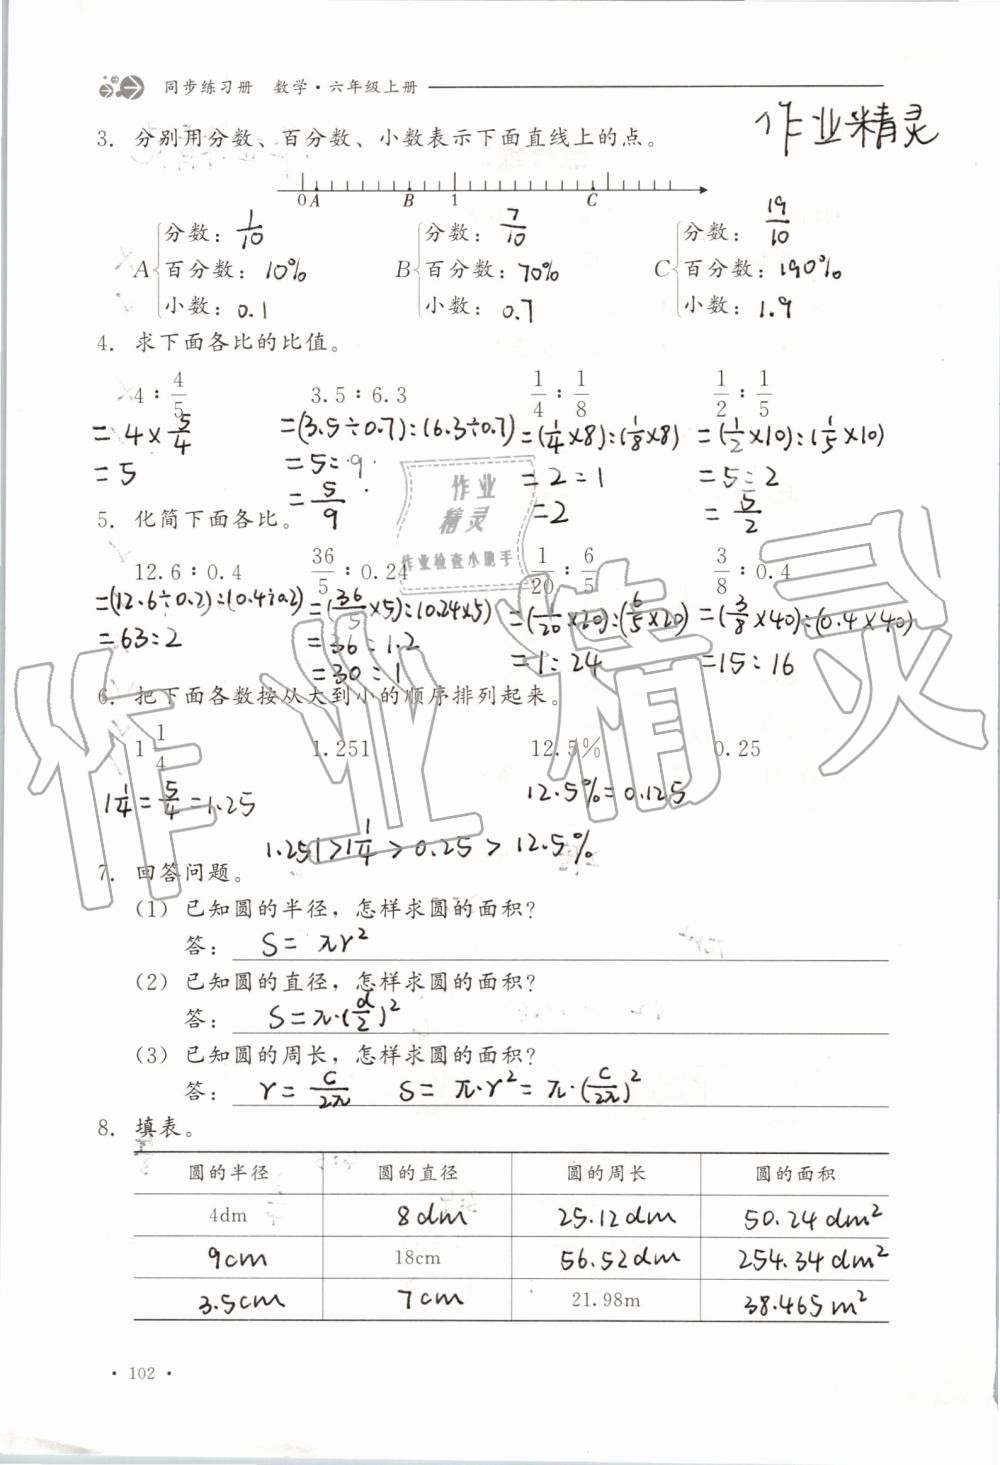 同步练习册 数学·六年级上册
作业精灵
3. 分别用分数、百分数、小数表示下面直线上的点。
0 A B 1 C
A 分数: 1/10 B 分数: 7/10 C 分数: 19/10
百分数: 10% 百分数: 70% 百分数: 190%
小数: 0.1 小数: 0.7 小数: 1.9
4. 求下面各比的比值。
4:4/5 3.5:6.3 1/4:1/8 1/2:1/5
=4×5/4 =(3.5÷0.7):(6.3÷0.7) =(1/4×8):(1/8×8) =(1/2×10):(1/5×10)
=5 =5:9 =2:1 =5:2
=5/9 =2 =5/2
作业
精灵
作业检查小助手
5. 化简下面各比。
12.6:0.4 36/5:0.24 1/20:6/5 3/8:0.4
=(12.6÷0.2):(0.4÷0.2) =(36/5×5):(0.24×5) =(1/20×20):(6/5×20) =(3/8×40):(0.4×40)
=63:2 =36:1.2 =1:24 =15:16
=30:1
作业精灵
6. 把下面各数按从大到小的顺序排列起来。
1 1/4 1.251 12.5% 0.25
1 1/4=5/4=1.25 12.5%=0.125
1.251>1 1/4>0.25>12.5%
7. 回答问题。
(1) 已知圆的半径，怎样求圆的面积?
答: S=πr²
(2) 已知圆的直径，怎样求圆的面积?
答: S=π·(d/2)²
(3) 已知圆的周长，怎样求圆的面积?
答: r=C/2π S=π·r²=π·(C/2π)²
8. 填表。
圆的半径 圆的直径 圆的周长 圆的面积
4dm 8dm 25.12dm 50.24dm²
9cm 18cm 56.52dm 254.34dm²
3.5cm 7cm 21.98m 38.465m²
· 102 ·